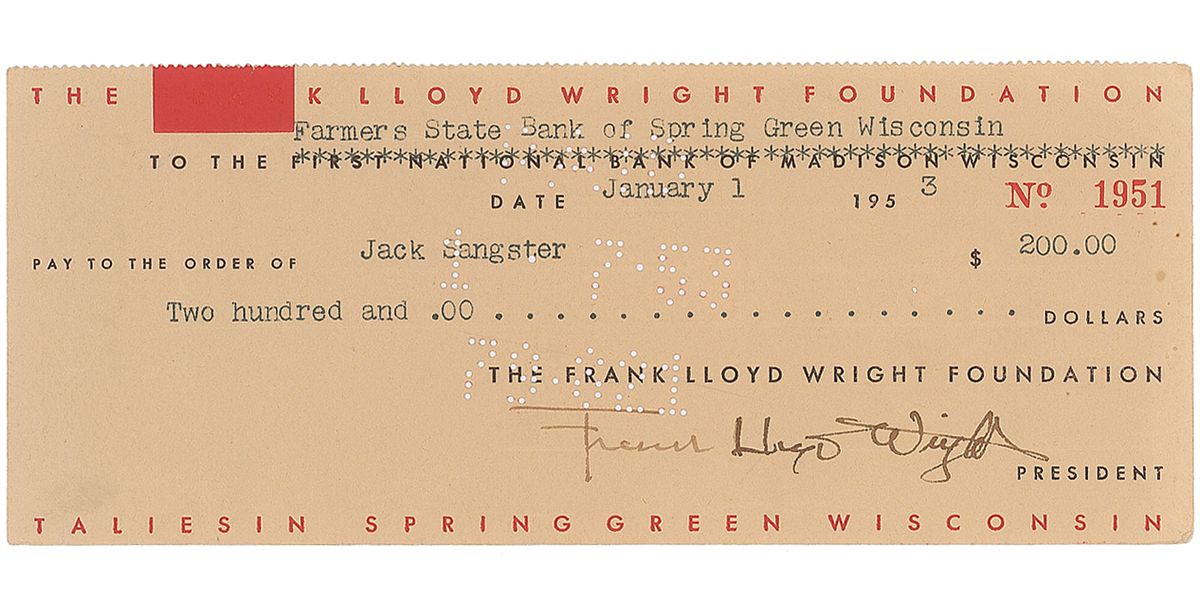 THE K LLOYD WRIGHT FOUNDATION
Farmers State Bank of Spring Green Wisconsin
TO THE FIRST NATIONAL BANK OF MADISON WISCONSIN
DATE January 1 1953 Nº 1951
PAY TO THE ORDER OF Jack Sangster $ 200.00
1 7·53
Two hundred and .00 . . . . . . . . . . . . . . . . . DOLLARS
THE FRANK LLOYD WRIGHT FOUNDATION
Frank Lloyd Wright
PRESIDENT
TALIESIN SPRING GREEN WISCONSIN